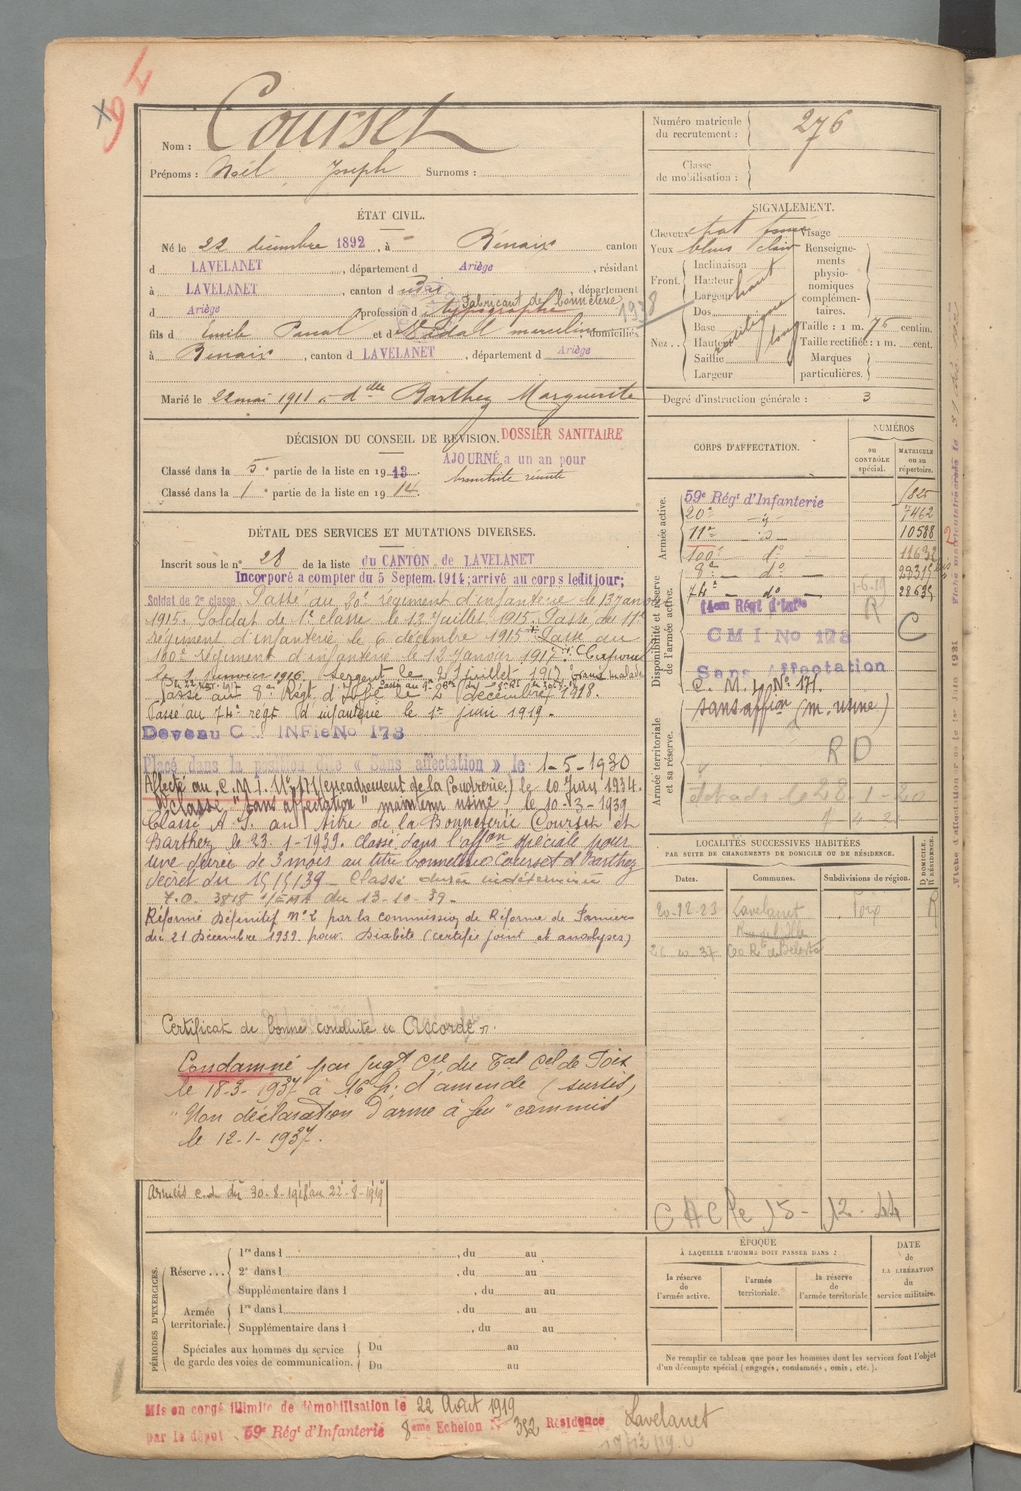 94
Nom : Courset
Prénoms : Noël Joseph Surnoms :
Numéro matricule du recrutement : 276
Classe de mobilisation :
ÉTAT CIVIL.
Né le 22 décembre 1892, à Bénaix canton
d LAVELANET, département d Ariège, résidant
à LAVELANET, canton d département
d Ariège profession d typographe Fabricant de bonneterie
fils d Emile Pascal et d domiciliés
à Bénaix, canton d LAVELANET, département d Ariège
Marié le 22 mai 1911 à dlle Barthez Marguerite
SIGNALEMENT.
1938
Cheveux chat foncé Visage
Yeux bleus clair Renseignements physionomiques complémentaires.
Front. Inclinaison
Hauteur haut
Largeur
Nez. Dos
Base
Hauteur
Saillie
Largeur
Taille : 1 m. 75 centim.
Taille rectifiée : 1 m. cent.
Marques particulières.
Degré d'instruction générale : 3
DÉCISION DU CONSEIL DE RÉVISION. DOSSIER SANITAIRE
Classé dans la 5e partie de la liste en 1913. AJOURNÉ a un an pour
bronchite
Classé dans la 1 e partie de la liste en 1914.
DÉTAIL DES SERVICES ET MUTATIONS DIVERSES.
Inscrit sous le n° 28 de la liste du CANTON de LAVELANET
Incorporé a compter du 5 Septem. 1914; arrivé au corps ledit jour;
Soldat de 2e classe. Passé au 20e régiment d'infanterie le 13 janv
1915. Soldat de 1e classe le 13 juillet 1915. Passé du 11e
régiment d'infanterie le 6 décembre 1915. Passé au
100e régiment d'infanterie le 12 Janvier 1917. Caporal
Sergent le 23 juillet 1917
Passé au 8e Régt d'Infie le 2 décembre 1918.
Passé au 74e régt d'infanterie le 1er juin 1919.
Devenu C INFie No 173
Placé dans la position dite « Sans affectation » le 1-5-1930
Affecté au C.M.I. No 171 (encadrement de la Poudrerie) le 10 Juin 1934.
Classé "sans affectation" maintenu usine, le 10-3-1939
Classé A.S. au titre de la Bonneterie Courset et
Barthez le 23-1-1939. classé dans l'affon spéciale pour
une durée de 3 mois au titre bonneterie Courset et Barthez
Décret du 15/5/39 - Classé durée indéterminée
3818 /EMA du 13-10-39-
Réformé Définitif n° 2 par la commission de Réforme de Pamiers
du 21 Décembre 1939 pour Diabète (certificat joint et analyses)
Certificat de bonne conduite "Accordé".
Condamné par jugt cre du Tal Cel de Foix
le 18-3-1937 à 16 fr. d'amende (sursis)
"Non déclaration d'arme à feu" commis
le 12-1-1937.
Armées c.d. du 30-8-1918 au 22-8-1919
CORPS D'AFFECTATION.
NUMÉROS
au CONTRÔLE spécial.
MATRICULE ou au répertoire.
Armée active.
Disponibilité et réserve de l'armée active.
Armée territoriale et sa réserve.
59e Régt d'Infanterie
20e 7462
11e 10588
100e do 11632
8e - do -
74e - do 1-6-19
14em Régt d'Infie R
CMI No 173 C
Sans Affectation
C. M. I. No 171.
sans affion (m. usine)
RD
28-1-20
LOCALITÉS SUCCESSIVES HABITÉES
PAR SUITE DE CHANGEMENTS DE DOMICILE OU DE RÉSIDENCE.
Dates. Communes. Subdivisions de région. D. DOMICILE. R. RÉSIDENCE.
20-12-23 Lavelanet Foix R
26-10-37 Rte de Bélesta
15-12-44
ÉPOQUE
À LAQUELLE L'HOMME DOIT PASSER DANS :
la réserve de l'armée active.
l'armée territoriale.
la réserve de l'armée territoriale
DATE de LA LIBÉRATION du service militaire.
Ne remplir ce tableau que pour les hommes dont les services font l'objet
d'un décompte spécial (engagés, condamnés, omis, etc.).
PÉRIODES D'EXERCICES.
Réserve... 1re dans l , du au
2e dans l , du au
Supplémentaire dans l , du au
Armée territoriale. 1re dans l , du au
Supplémentaire dans l , du au
Spéciales aux hommes du service de garde des voies de communication. Du au
Du au
Mis en congé illimité de démobilisation le 22 Août 1919
par le dépôt 59e Régt d'Infanterie 8eme Echelon N° 352 Résidence Lavelanet